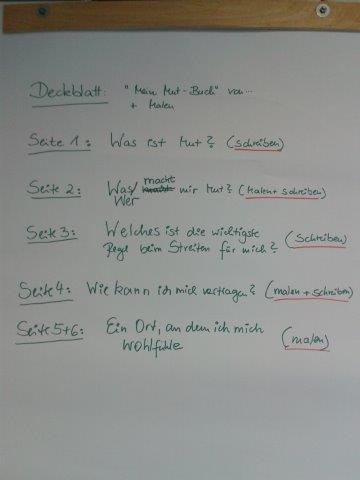 Deckblatt: "Mein Mut-Buch" von...
+ Malen
Seite 1: Was ist Mut? (schreiben)
Seite 2: Was/ macht mir Mut? (Malen + schreiben)
Wer
Seite 3: Welches ist die wichtigste
Regel beim Streiten für mich? (Schreiben)
Seite 4: Wie kann ich mich vertragen? (malen + schreiben)
Seite 5+6: Ein Ort, an dem ich mich
wohlfühle (malen)